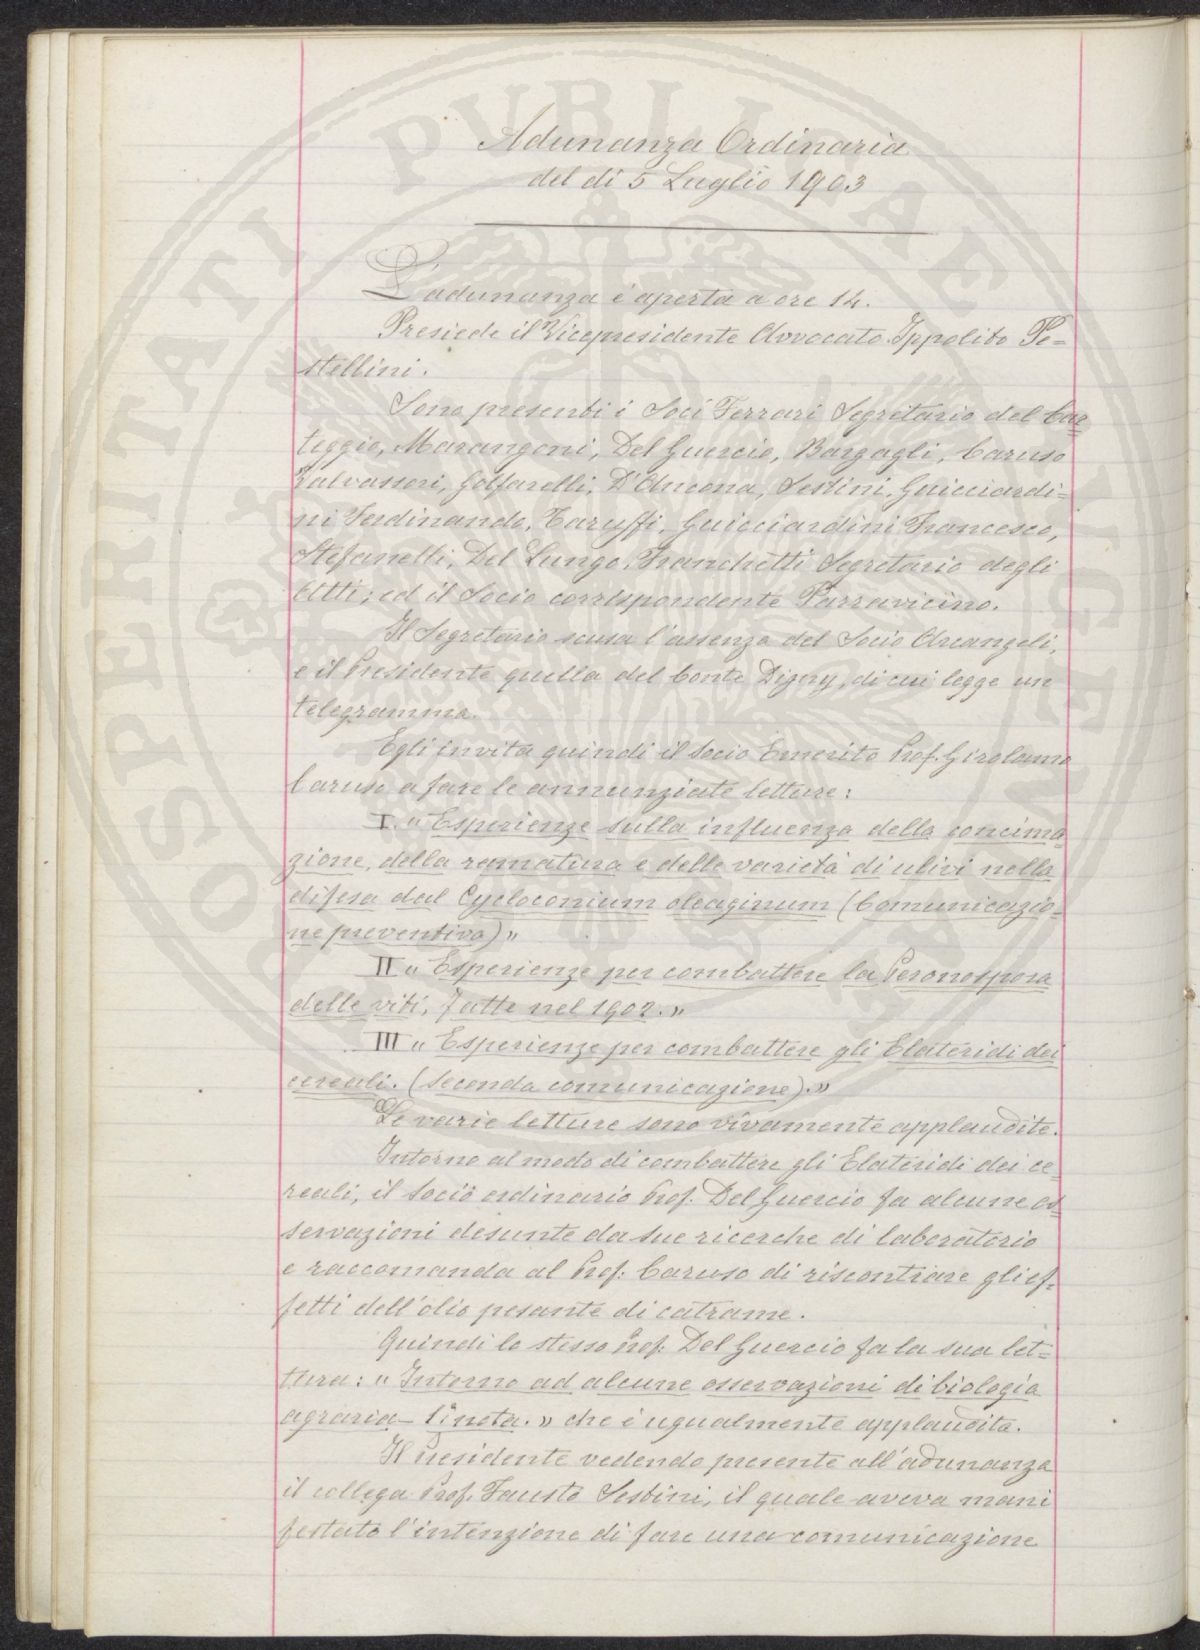 Adunanza Ordinaria
del dì 5 Luglio 1903
L'adunanza è aperta a ore 14.
Presiede il Vicepresidente Avvocato Ippolito Pe=
stellini.
Sono presenti i Soci Ferrari Segretario del Car=
teggio, Marangoni, Del Guercio, Bargagli, Caruso
Valvassori, Golfarelli, D'Ancona, Sestini, Guicciardi=
ni Ferdinando, Taruffi, Guicciardini Francesco,
Stefanelli, Del Lungo, Franchetti Segretario degli
Atti; ed il Socio corrispondente Parravicino.
Il Segretario scusa l'assenza del Socio Arcangeli,
e il Presidente quella del Conte Digny, di cui legge un
telegramma.
Egli invita quindi il Socio Emerito Prof. Girolamo
Caruso a fare le annunziate letture:
I. "Esperienze sulla influenza della concima=
zione, della ramatura e delle varietà di ulivi nella
difesa dal Cycloconium oleaginum (Comunicazio=
ne preventiva)"
II "Esperienze per combattere la Peronospora
delle viti, fatte nel 1902."
III "Esperienze per combattere gli Elateridi dei
cereali. (Seconda comunicazione)."
Le varie letture sono vivamente applaudite.
Intorno al modo di combattere gli Elateridi dei ce=
reali, il Socio ordinario Prof. Del Guercio fa alcune os=
servazioni desunte da sue ricerche di laboratorio
e raccomanda al Prof. Caruso di riscontrare gli ef=
fetti dell'olio pesante di catrame.
Quindi lo stesso Prof. Del Guercio fa la sua let=
tura: "Intorno ad alcune osservazioni di biologia
agraria – 1ª nota." che è ugualmente applaudita.
Il Presidente vedendo presente all'adunanza
il collega Prof. Fausto Sestini, il quale aveva mani
festato l'intenzione di fare una comunicazione
PROSPERITATI PUBLICAE AUGENDAE